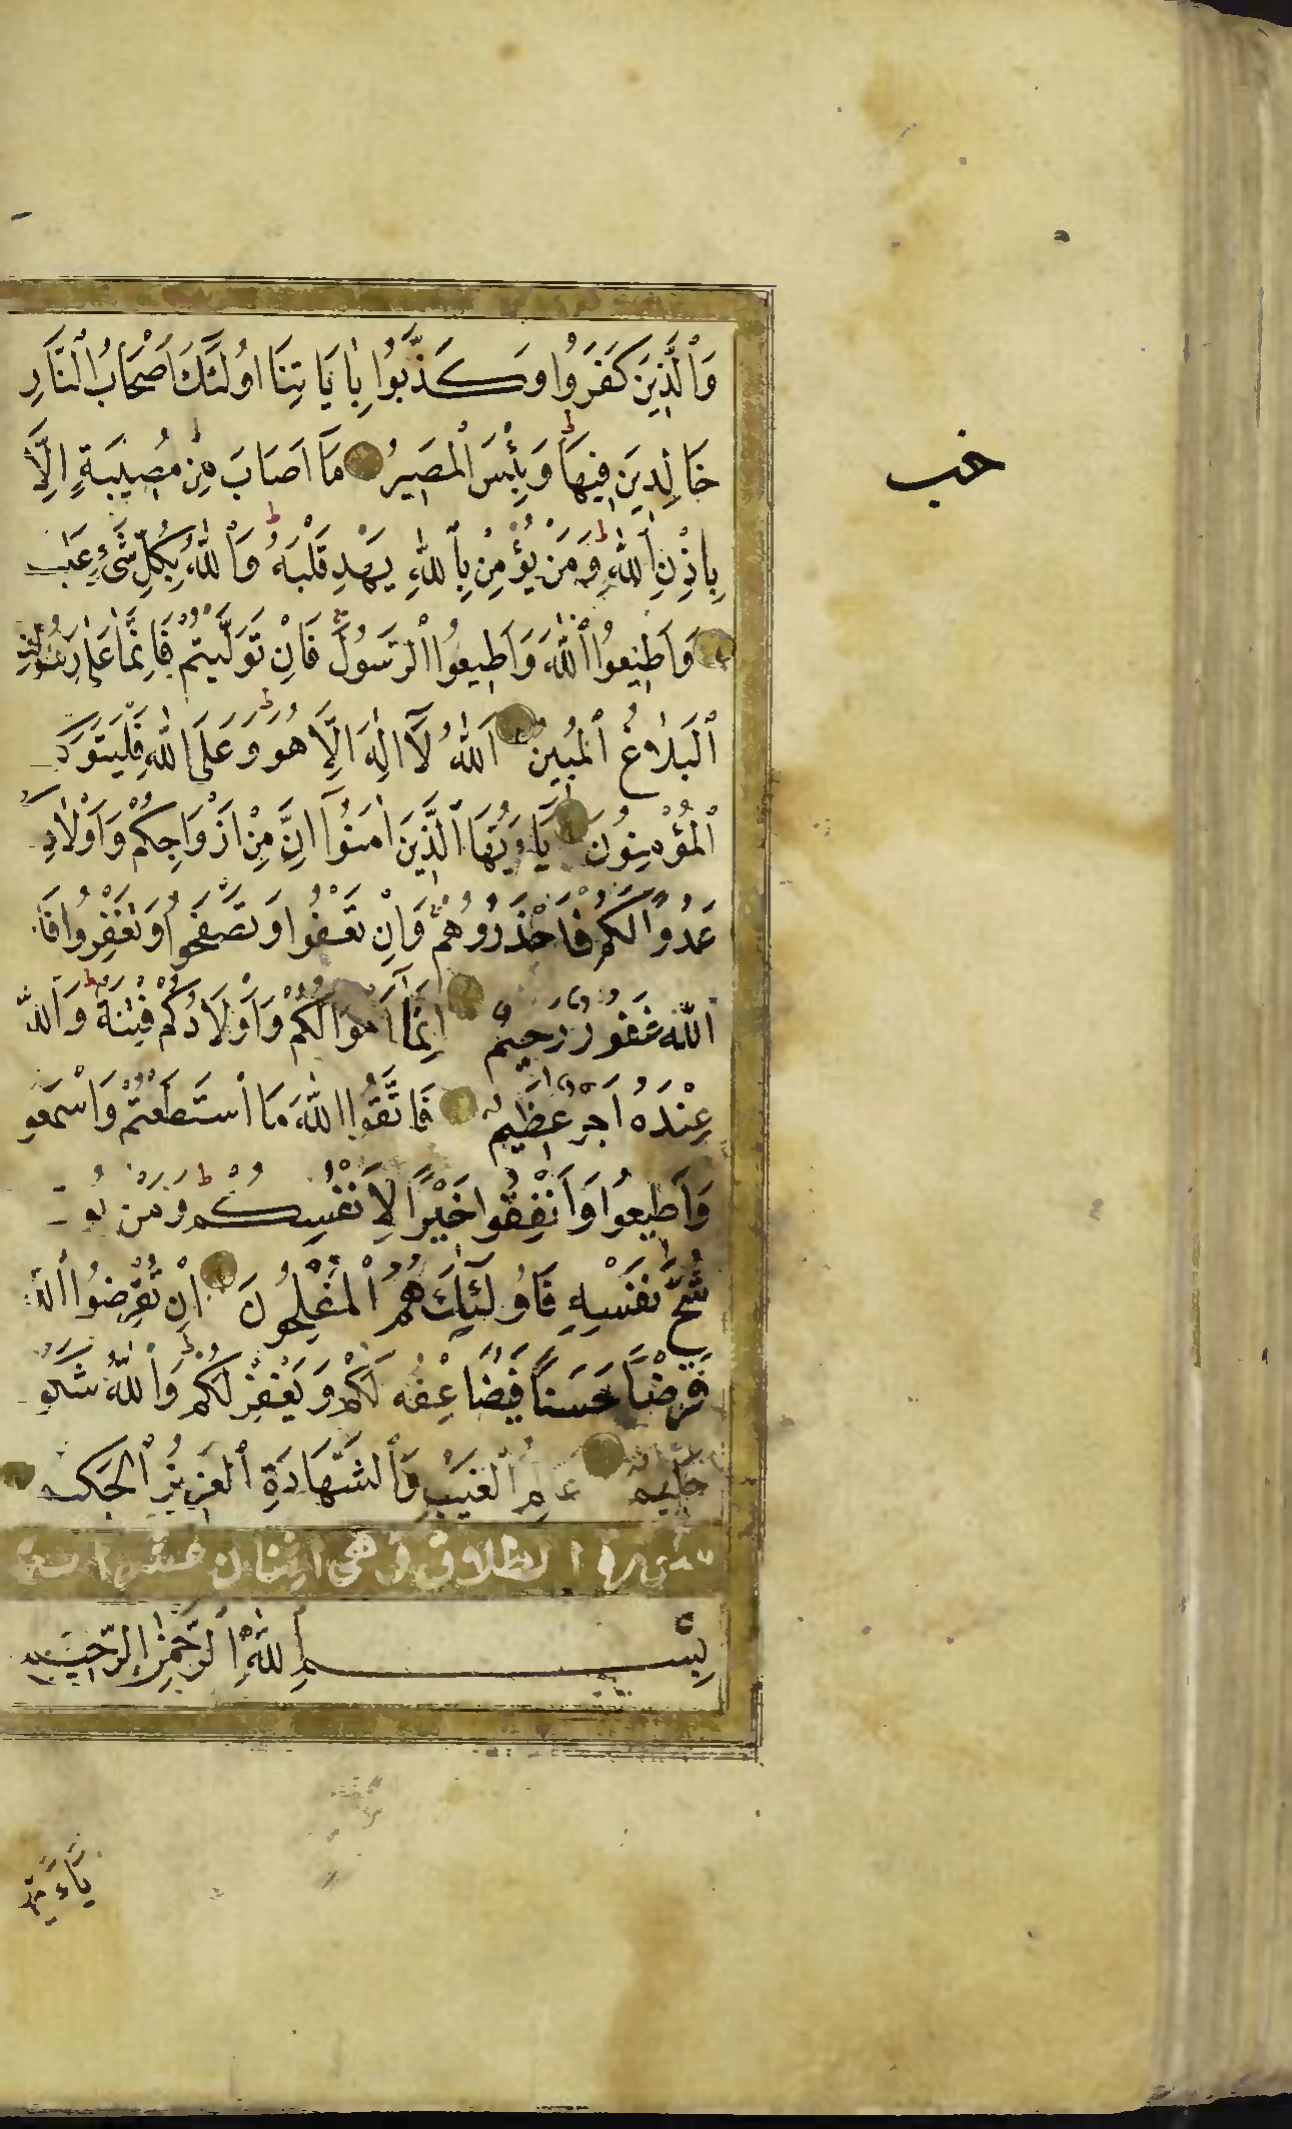 وَالَّذِينَ كَفَرُوا وَكَذَّبُوا بِاٰيَاتِنَا اُولٰئِكَ اَصْحَابُ النَّارِ
خَالِدِينَ فِيهَا وَبِئْسَ الْمَصِيرُ مَا اَصَابَ مِنْ مُصِيبَةٍ اِلَّا
خب
بِاِذْنِ اللّٰهِ وَمَنْ يُؤْمِنْ بِاللّٰهِ يَهْدِ قَلْبَهُ وَاللّٰهُ بِكُلِّ شَيْءٍ
وَاَطِيعُوا اللّٰهَ وَاَطِيعُوا الرَّسُولَ فَاِنْ تَوَلَّيْتُمْ فَاِنَّمَا عَلٰى رَسُولِنَا
الْبَلَاغُ الْمُبِينُ اَللّٰهُ لَا اِلٰهَ اِلَّا هُوَ وَعَلَى اللّٰهِ فَلْيَتَوَكَّ
الْمُؤْمِنُونَ يَا اَيُّهَا الَّذِينَ اٰمَنُوا اِنَّ مِنْ اَزْوَاجِكُمْ وَاَوْلَادِكُ
عَدُوًّا لَكُمْ فَاحْذَرُوهُمْ وَاِنْ تَعْفُوا وَتَصْفَحُوا وَتَغْفِرُوا فَاِ
اللّٰهَ غَفُورٌ رَحِيمٌ اِنَّمَا اَمْوَالُكُمْ وَاَوْلَادُكُمْ فِتْنَةٌ وَاللّٰهُ
عِنْدَهُ اَجْرٌ عَظِيمٌ فَاتَّقُوا اللّٰهَ مَا اسْتَطَعْتُمْ وَاسْمَعُو
وَاَطِيعُوا وَاَنْفِقُوا خَيْرًا لِاَنْفُسِكُمْ وَمَنْ يُو
شُحَّ نَفْسِهِ فَاُولٰئِكَ هُمُ الْمُفْلِحُونَ اِنْ تُقْرِضُوا اللّٰهَ
قَرْضًا حَسَنًا يُضَاعِفْهُ لَكُمْ وَيَغْفِرْ لَكُمْ وَاللّٰهُ شَكُو
حَلِيمٌ عَالِمُ الْغَيْبِ وَالشَّهَادَةِ الْعَزِيزُ الْحَكِيمُ
سورة الطلاق وهي اثنان عشر اية
بِسْمِ اللّٰهِ الرَّحْمٰنِ الرَّحِيمِ